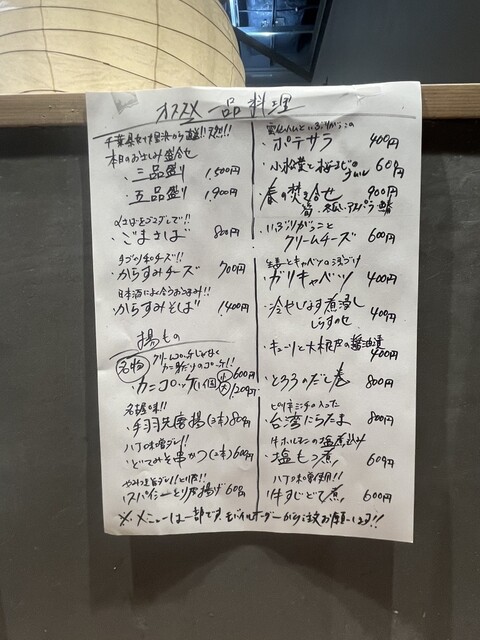 オススメ 一品料理
千葉県 から直送!! 天然!!
本日のお刺身盛合せ
・三品盛り 1,500円
・五品盛り 1,900円
さばをゴマダレで!!
・ごまさば 800円
チーズ!!
・からすみチーズ 700円
日本酒によく合うおつまみ!!
・からすみそば 1,400円
揚もの
名物 クリームコロッケじゃなく
カニ コロッケ!!
・カニコロッケ(1個) 小600円
大1,200円
名古屋味!!
・手羽先唐揚(3本) 800円
八丁味噌ダレ!!
・どてみそ串かつ(2本) 600円
やみつき旨ダレ!!
・スパイシーとり皮揚げ 600円
いぶりがっこの
・ポテサラ 400円
・小松菜と桜えび 600円
・春の焚き合せ 900円
筍 アスパラ
・いぶりがっこと
クリームチーズ 600円
生姜とキャベツの浅づけ
・ガリキャベツ 400円
・冷やしなす煮浸し
しらすのせ 400円
・キュウリと大根皮の醤油漬
400円
・とろろのだし巻 800円
ピリ辛ミンチの入った
・台湾にらたま 800円
牛ホルモンの塩煮込み
・塩もつ煮 600円
八丁味噌使用!!
・牛すじどて煮 600円
※メニューは一部です。モバイルオーダーからご注文お願いします!!